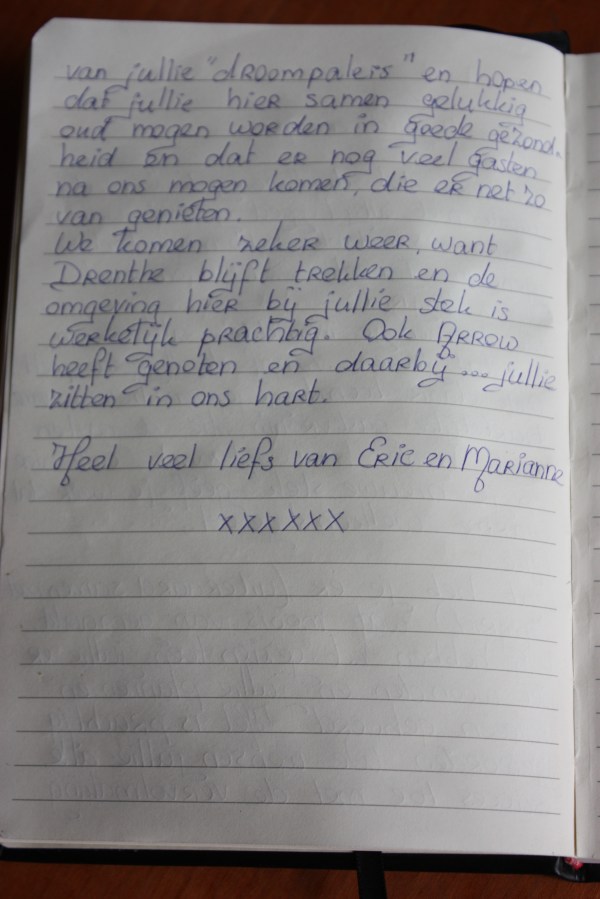 van jullie "droompaleis" en hopen
dat jullie hier samen gelukkig
oud mogen worden in goede gezond-
heid en dat er nog veel gasten
na ons mogen komen, die er net zo
van genieten.
We komen zeker weer, want
Drenthe blijft trekken en de
omgeving hier bij jullie stek is
werkelijk prachtig. Ook Arrow
heeft genoten en daarbij... jullie
zitten in ons hart.
Heel veel liefs van Eric en Marianne
xxxxxx